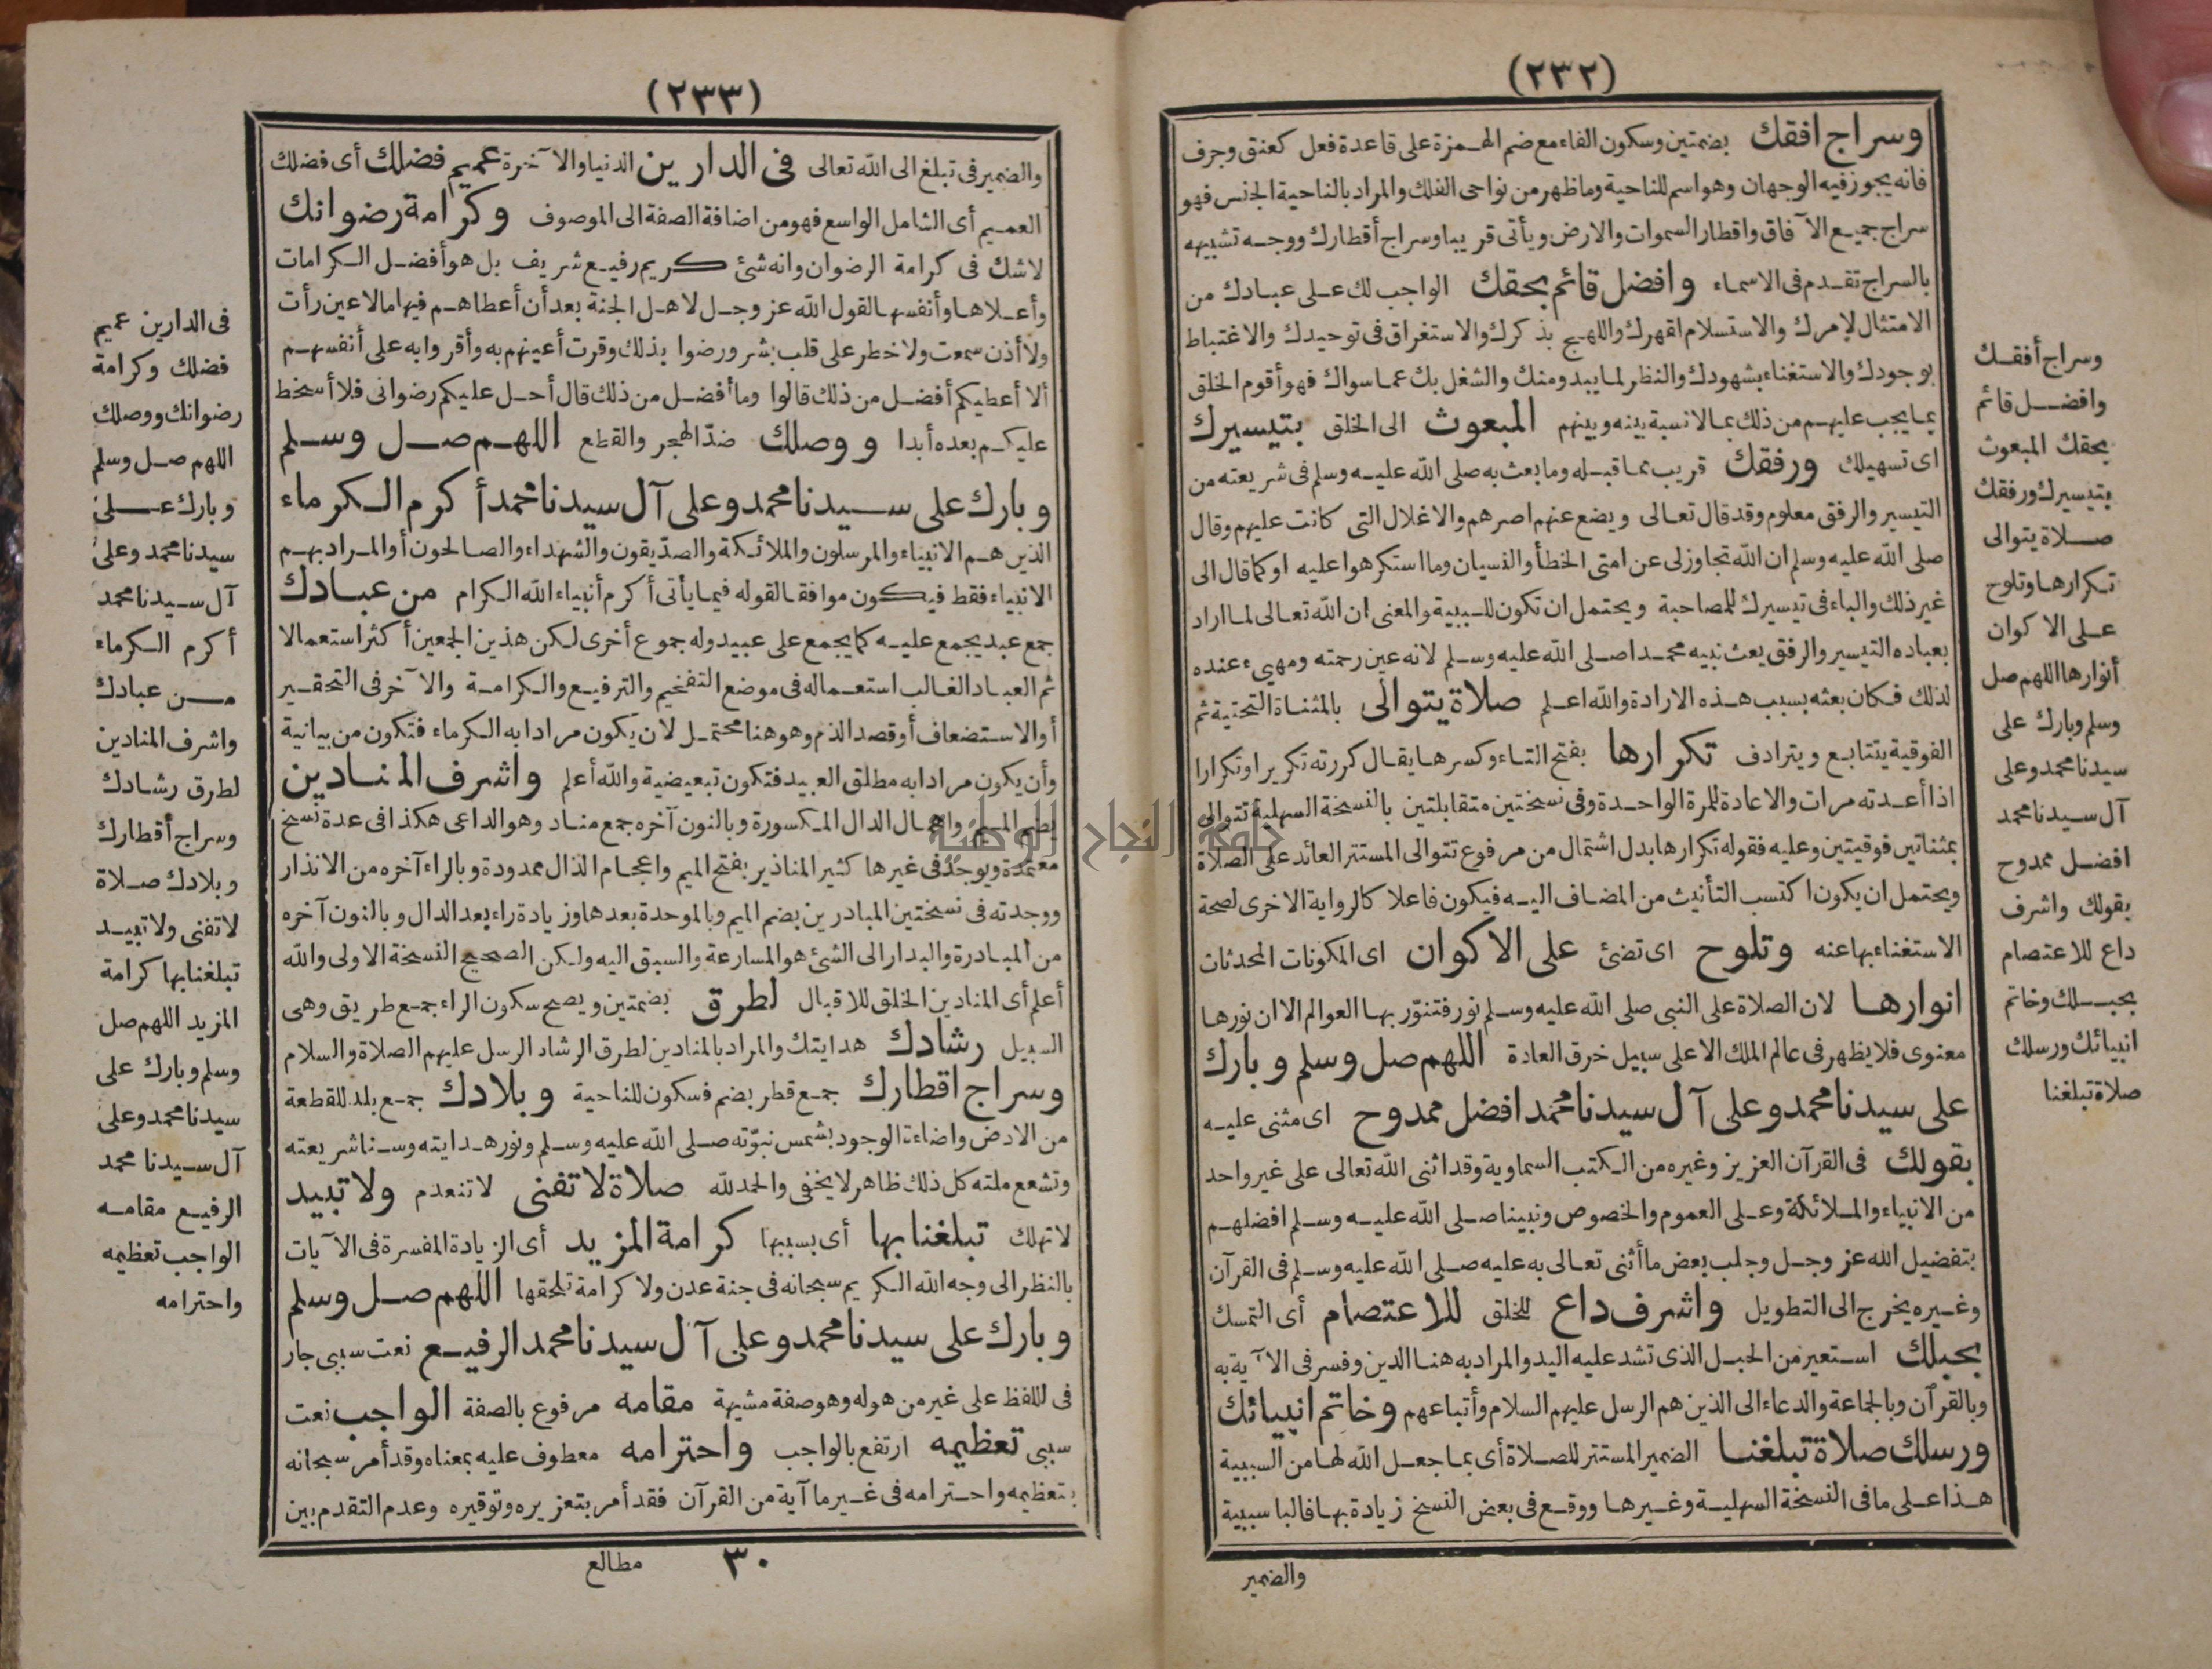 (٢٣٢)
وسراج افقك بضمتين وسكون الفاء مع ضم الهمزة على قاعدة فعل كعنق وجرف
فانه يجوز فيه الوجهان وهو اسم للناحية وما ظهر من نواحى الفلك والمراد بالناحية الجنس فهو
سراج جميع الآفاق واقطار السموات والارض ويأتى قريبا وسراج أقطارك ووجه تشبيهه
بالسراج تقدم فى الاسماء وافضل قائم بحقك الواجب لك على عبادك من
الامتثال لإمرك والاستسلام لقهرك واللهج بذكرك والاستغراق فى توحيدك والاغتباط
بوجودك والاستغناء بشهودك والنظر لما يبدو منك والشغل بك عما سواك فهو أقوم الخلق
بما يجب عليهم من ذلك بما لا نسبة بينه وبينهم المبعوث الى الخلق بتيسيرك
اى تسهيلك ورفقك قريب مما قبله وما بعث به صلى الله عليه وسلم فى شريعته من
التيسير والرفق معلوم وقد قال تعالى ويضع عنهم اصرهم والاغلال التى كانت عليهم وقال
صلى الله عليه وسلم ان الله تجاوز لى عن امتى الخطأ والنسيان وما استكرهوا عليه او كما قال الى
غير ذلك والباء فى تيسيرك للمصاحبة ويحتمل ان تكون للسببية والمعنى ان الله تعالى لما اراد
بعباده التيسير والرفق بعث نبيه محمدا صلى الله عليه وسلم لانه عين رحمته ومهيء عنده
لذلك فكان بعثه بسبب هذه الارادة والله اعلم صلاة يتوالى بالمثناة التحتية ثم
الفوقية يتتابع ويترادف تكرارها بفتح التاء وكسرها يقال كررته تكريرا وتكرارا
اذا أعدته مرات والاعادة للمرة الواحدة وفى نسختين متقابلتين بالنسخة السهلية تتوالى
بمثناتين فوقيتين وعليه فقوله تكرارها بدل اشتمال من مرفوع تتوالى المستتر العائد على الصلاة
ويحتمل ان يكون اكتسب التأنيث من المضاف اليه فيكون فاعلا كالرواية الاخرى لصحة
الاستغناء بها عنه وتلوح اى تضئ على الاكوان اى المكونات المحدثات
انوارها لان الصلاة على النبى صلى الله عليه وسلم نور فتنور بها العوالم الا ان نورها
معنوى فلا يظهر فى عالم الملك الا على سبيل خرق العادة اللهم صل وسلم وبارك
على سيدنا محمد وعلى آل سيدنا محمد افضل ممدوح اى مثنى عليه
بقولك فى القرآن العزيز وغيره من الكتب السماوية وقد اثنى الله تعالى على غير واحد
من الانبياء والملائكة وعلى العموم والخصوص ونبينا صلى الله عليه وسلم افضلهم
بتفضيل الله عز وجل وجلب بعض ما أثنى تعالى به عليه صلى الله عليه وسلم فى القرآن
وغيره يخرج الى التطويل واشرف داع للخلق للاعتصام أى التمسك
بحبلك استعير من الحبل الذى تشد عليه اليد والمراد به هنا الدين وفسر فى الآية به
وبالقرآن وبالجماعة والدعاء الى الذين هم الرسل عليهم السلام وأتباعهم وخاتم انبيائك
ورسلك صلاة تبلغنا الضمير المستتر للصلاة أى بما جعل الله لها من السببية
هذا على ما فى النسخة السهلية وغيرها ووقع فى بعض النسخ زيادة بها فالبا سببية
والضمير
وسراج أفقك
وافضل قائم
بحقك المبعوث
بتيسيرك ورفقك
صلاة يتوالى
تكرارها وتلوح
على الاكوان
أنوارها اللهم صل
وسلم وبارك على
سيدنا محمد وعلى
آل سيدنا محمد
افضل ممدوح
بقولك واشرف
داع للاعتصام
بحبلك وخاتم
انبيائك ورسلك
صلاة تبلغنا
(٢٣٣)
والضمير فى تبلغ الى الله تعالى فى الدارين الدنيا والآخرة عميم فضلك أى فضلك
العميم أى الشامل الواسع فهو من اضافة الصفة الى الموصوف وكرامة رضوانك
لاشك فى كرامة الرضوان وانه شئ كريم رفيع شريف بل هو أفضل الكرامات
وأعلاها وأنفسها لقول الله عز وجل لاهل الجنة بعد أن أعطاهم فيها مالا عين رأت
ولا أذن سمعت ولا خطر على قلب بشر ورضوا بذلك وقرت أعينهم به وأقروا به على أنفسهم
ألا أعطيكم أفضل من ذلك قالوا وما أفضل من ذلك قال أحل عليكم رضوانى فلا أسخط
عليكم بعده أبدا ووصلك ضد الهجر والقطع اللهم صل وسلم
وبارك على سيدنا محمد وعلى آل سيدنا محمد أكرم الكرماء
الذين هم الانبياء والمرسلون والملائكة والصديقون والشهداء والصالحون أو المراد بهم
الانبياء فقط فيكون موافقا لقوله فيما يأتى أكرم أنبياء الله الكرام من عبادك
جمع عبد يجمع عليه كما يجمع على عبيد وله جموع أخرى لكن هذين الجمعين أكثر استعمالا
ثم العباد الغالب استعماله فى موضع التفخيم والترفيع والكرامة والآخر فى التحقير
أو الاستضعاف أو قصد الذم وهو هنا محتمل لان يكون مرادا به الكرماء فتكون من بيانية
وأن يكون مرادا به مطلق العبيد فتكون تبعيضية والله أعلم واشرف المنادين
بضم الميم واهمال الدال المكسورة وبالنون آخره جمع مناد وهو الداعى هكذا فى عدة نسخ
معتمدة ويوجد فى غيرها كثير المناذير بفتح الميم واعجام الذال ممدودة وبالراء آخره من الانذار
ووجدته فى نسختين المبادرين بضم الميم وبالموحدة بعدها وزيادة راء بعد الدال وبالنون آخره
من المبادرة والبدار الى الشئ هو المسارعة والسبق اليه ولكن الصحيح النسخة الاولى والله
أعلم أى المنادين الخلق للاقبال لطرق بضمتين ويصح سكون الراء جمع طريق وهى
السبيل رشادك هدايتك والمراد بالمنادين لطرق الرشاد الرسل عليهم الصلاة والسلام
وسراج اقطارك جمع قطر بضم فسكون للناحية وبلادك جمع بلد للقطعة
من الارض واضاءت الوجود بشمس نبوته صلى الله عليه وسلم ونور هدايته وسنا شريعته
وتشعع ملته كل ذلك ظاهر لا يخفى والحمد لله صلاة لا تفنى لا تنعدم ولا تبيد
لا تهلك تبلغنا بها أى بسببها كرامة المزيد أى الزيادة المفسرة فى الآيات
بالنظر الى وجه الله الكريم سبحانه فى جنة عدن ولا كرامة تلحقها اللهم صل وسلم
وبارك على سيدنا محمد وعلى آل سيدنا محمد الرفيع نعت سببى جار
فى اللفظ على غير من هو له وهو صفة مشبهة مقامه مرفوع بالصفة الواجب نعت
سببى تعظيمه ارتفع بالواجب واحترامه معطوف عليه بمعناه وقد أمر سبحانه
بتعظيمه واحترامه فى غير ما آية من القرآن فقد أمر بتعزيره وتوقيره وعدم التقدم بين
٣٠ مطالع
فى الدارين عميم
فضلك وكرامة
رضوانك ووصلك
اللهم صل وسلم
وبارك على
سيدنا محمد وعلى
آل سيدنا محمد
أكرم الكرماء
من عبادك
واشرف المنادين
لطرق رشادك
وسراج أقطارك
وبلادك صلاة
لا تفنى ولا تبيد
تبلغنا بها كرامة
المزيد اللهم صل
وسلم وبارك على
سيدنا محمد وعلى
آل سيدنا محمد
الرفيع مقامه
الواجب تعظيمه
واحترامه
جامعة النجاح الوطنية